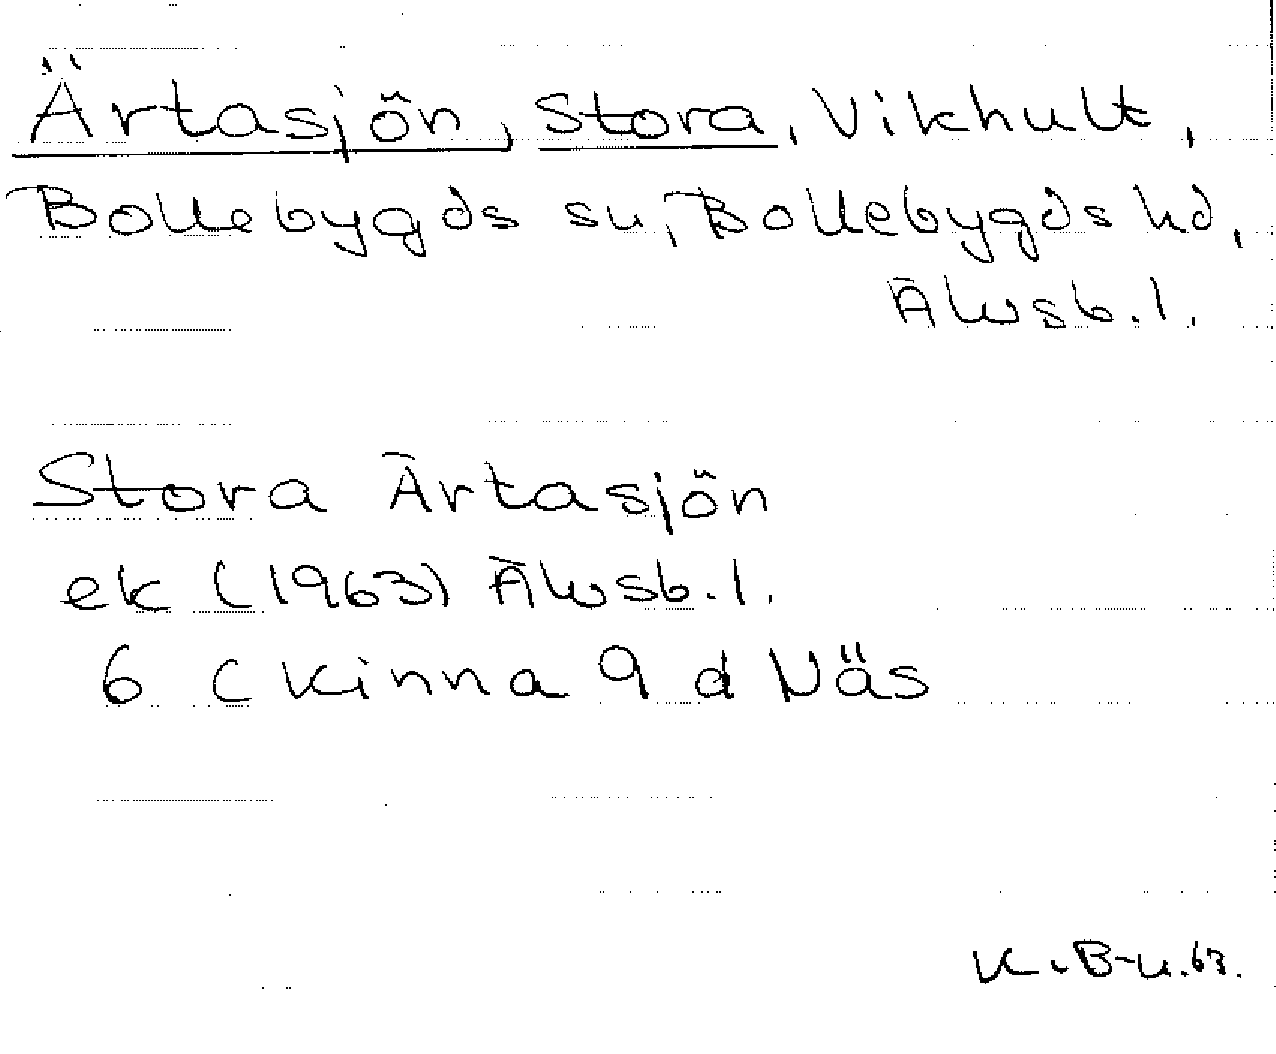 Ärtasjön, Stora, Vikhult,
Bollebygds sn, Bollebygds hd,
Älvsb. l.
Stora Ärtasjön
ek (1963) Älvsb. l.
6 C Kinna 9 d Näs
K. B-n. 63.